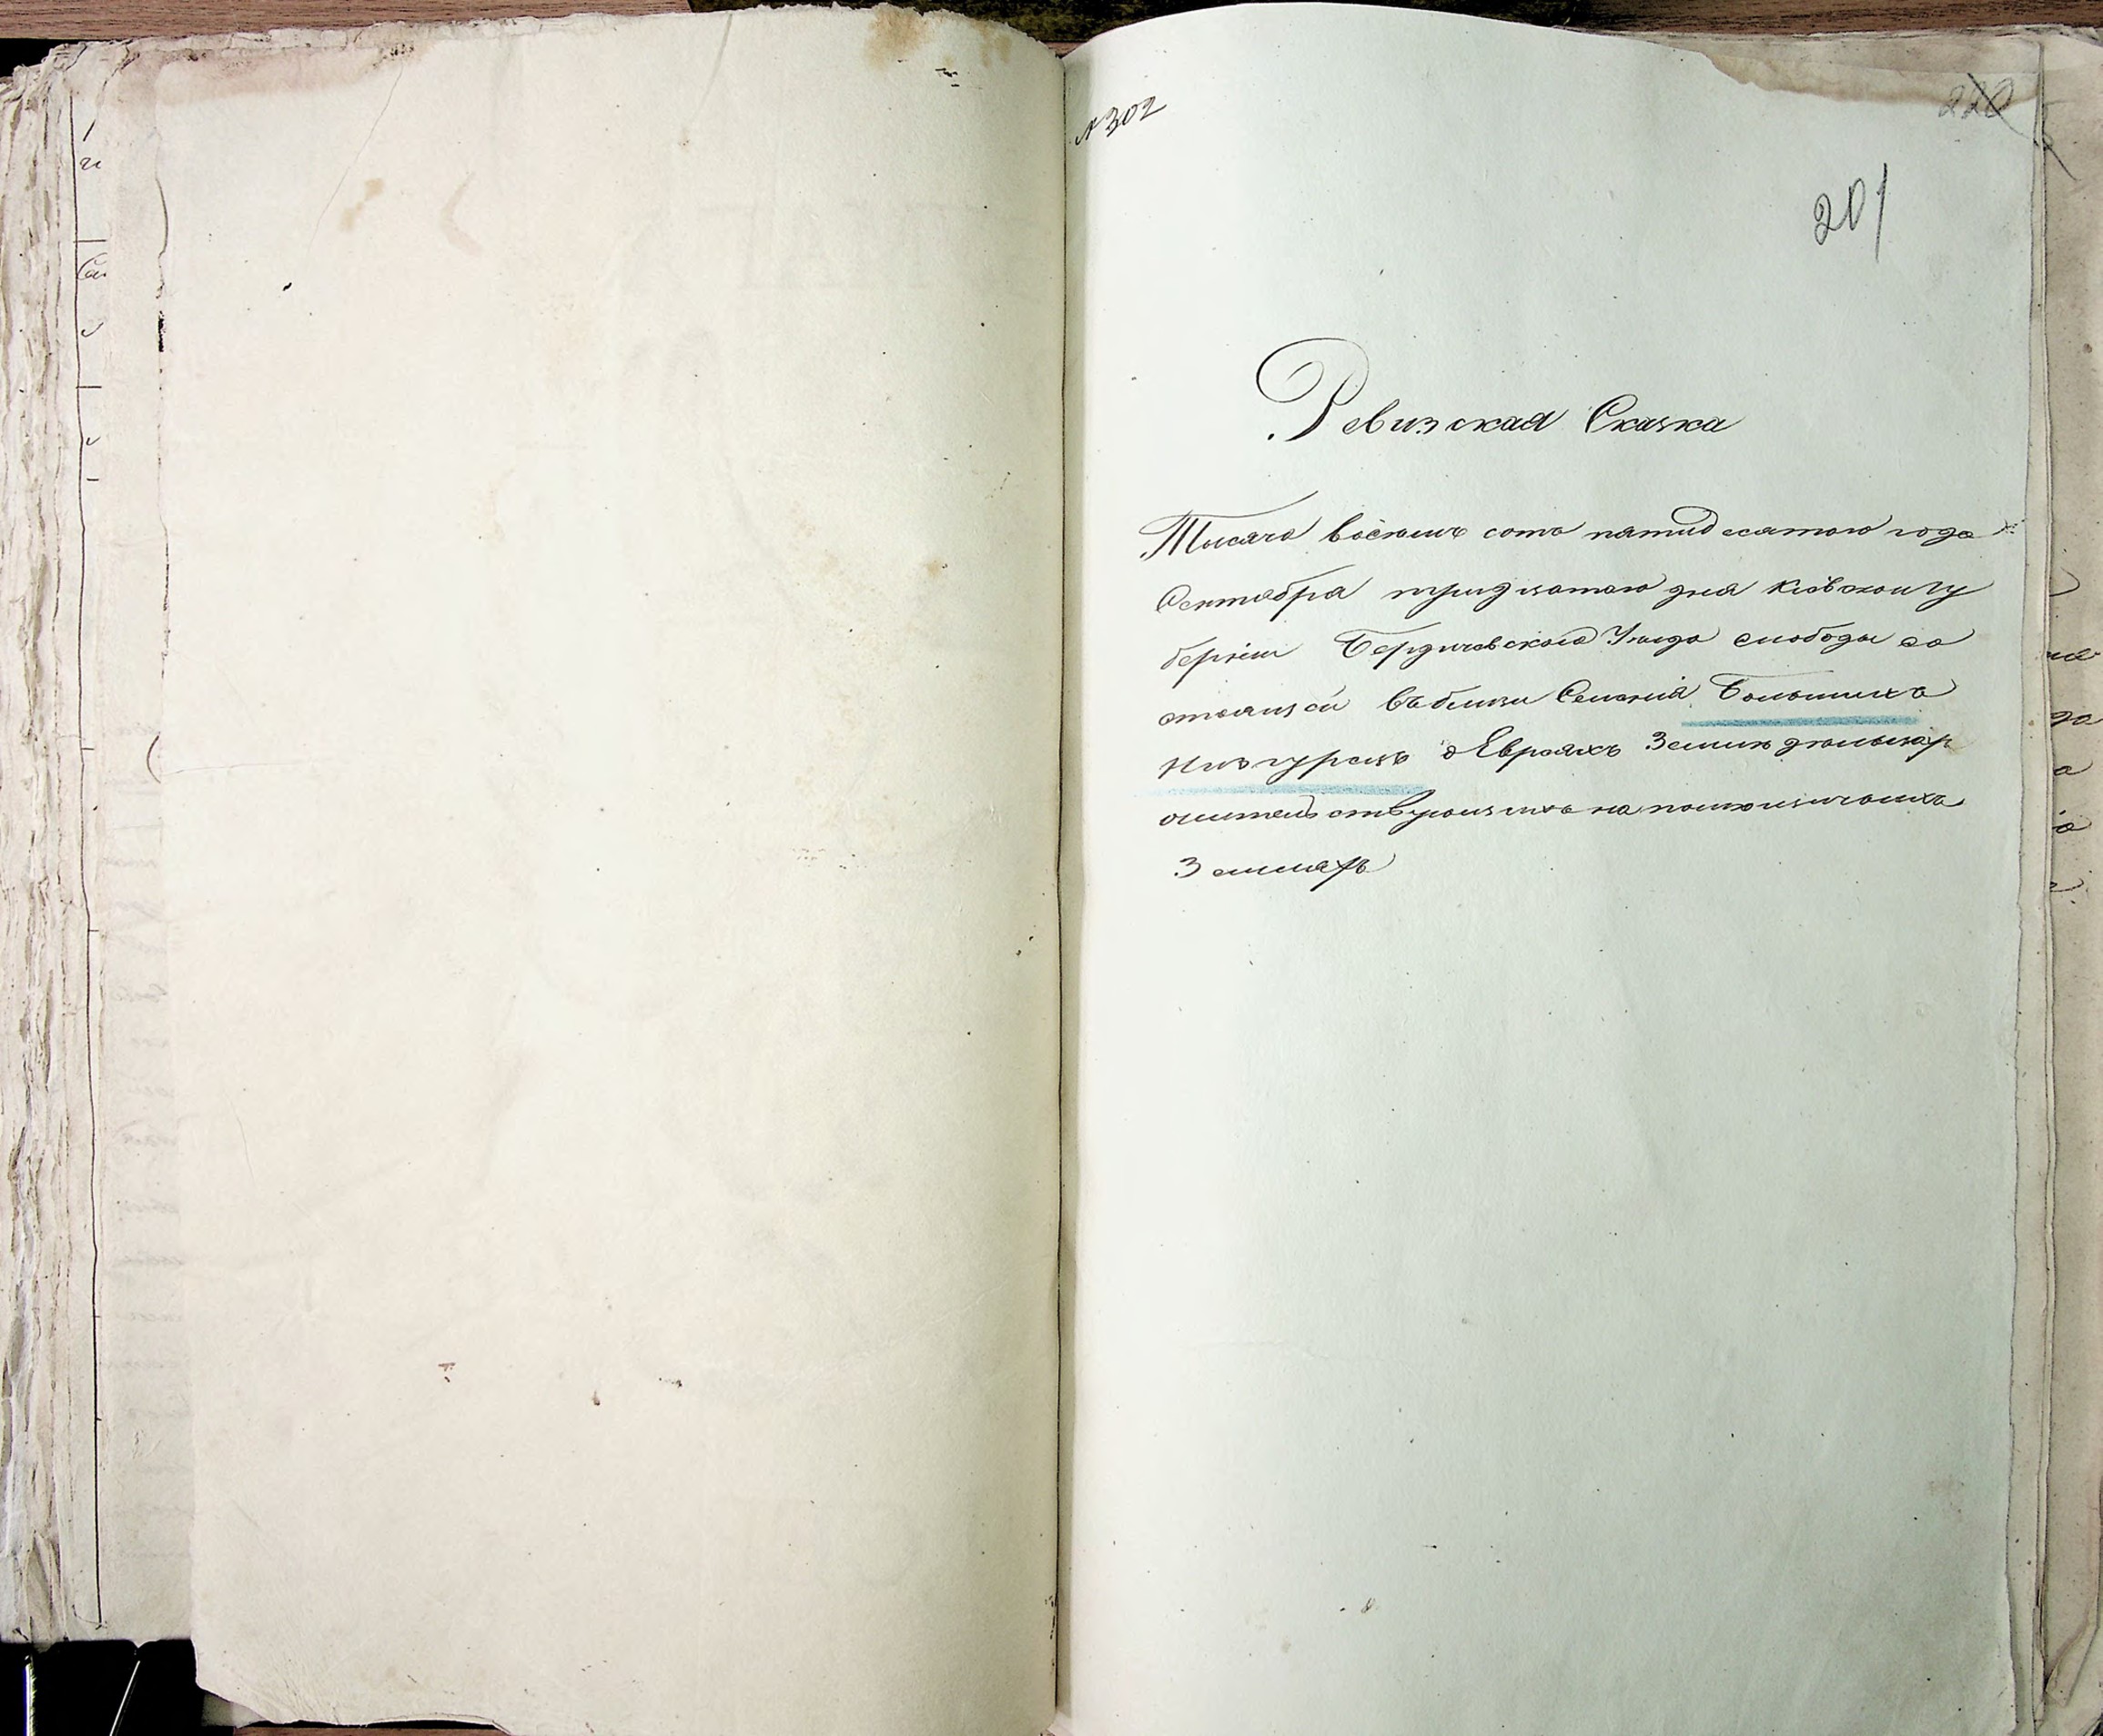 № 302
220
201
Ревизская Сказка
Тысяча восемь сотъ пятидесятого года
Сентября тридцатого дня Кіевской гу
берніи Бердичевского Уезда слободы со
стоящей въблизи Селенія Большихъ
Низгурецъ о Евреяхъ Земледельцах
жительствующихъ на помещичьихъ
Земляхъ